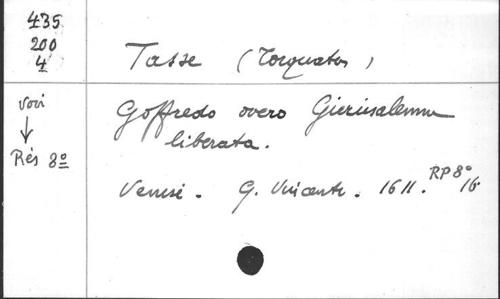 435
200
4
Tasse (Torquato)
Voir
↓
Rés 8º
Goffredo overo Gierusalemme
liberata.
Venise. G. Vincenti. 1611. RP 8º
16